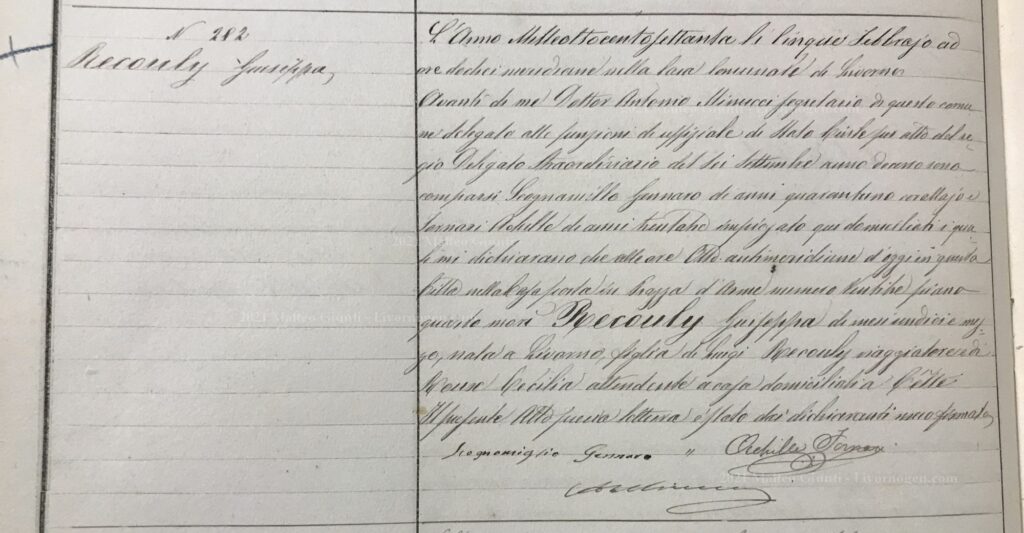 N 282
Recouly Giuseppa
L'Anno Milleottocentosettanta li Cinque Febbrajo ad
ore dodici meridiane nella Casa Comunale di Livorno
Avanti di me Dottor Antonio Minucci segretario di questo comu
ne delegato alle funzioni di uffiziale di Stato Civile per atto del re
gio Delegato Straordinario del sei Settembre anno decorso sono
comparsi Scognamillo Gennaro di anni quarantuno corallajo e
Fornari Achille di anni trentatre impiegato qui domiciliati i qua
li mi dichiarano che alle ore Otto antimeridiane d'oggi in questa
Città nella Casa posta in Piazza d'Arme numero Ventitre piano
quarto morì Recouly Giuseppa di mesi undici e mez
zo, nata a Livorno figlia di Luigi Recouly viaggiatore e di
Roux Cecilia attendente a casa domiciliati a Cette
Il presente Atto previa lettura è stato dai dichiaranti meco firmato
Scognamiglio Gennaro " Achille Fornari
2021 Matteo Giunti - Livornogen.com